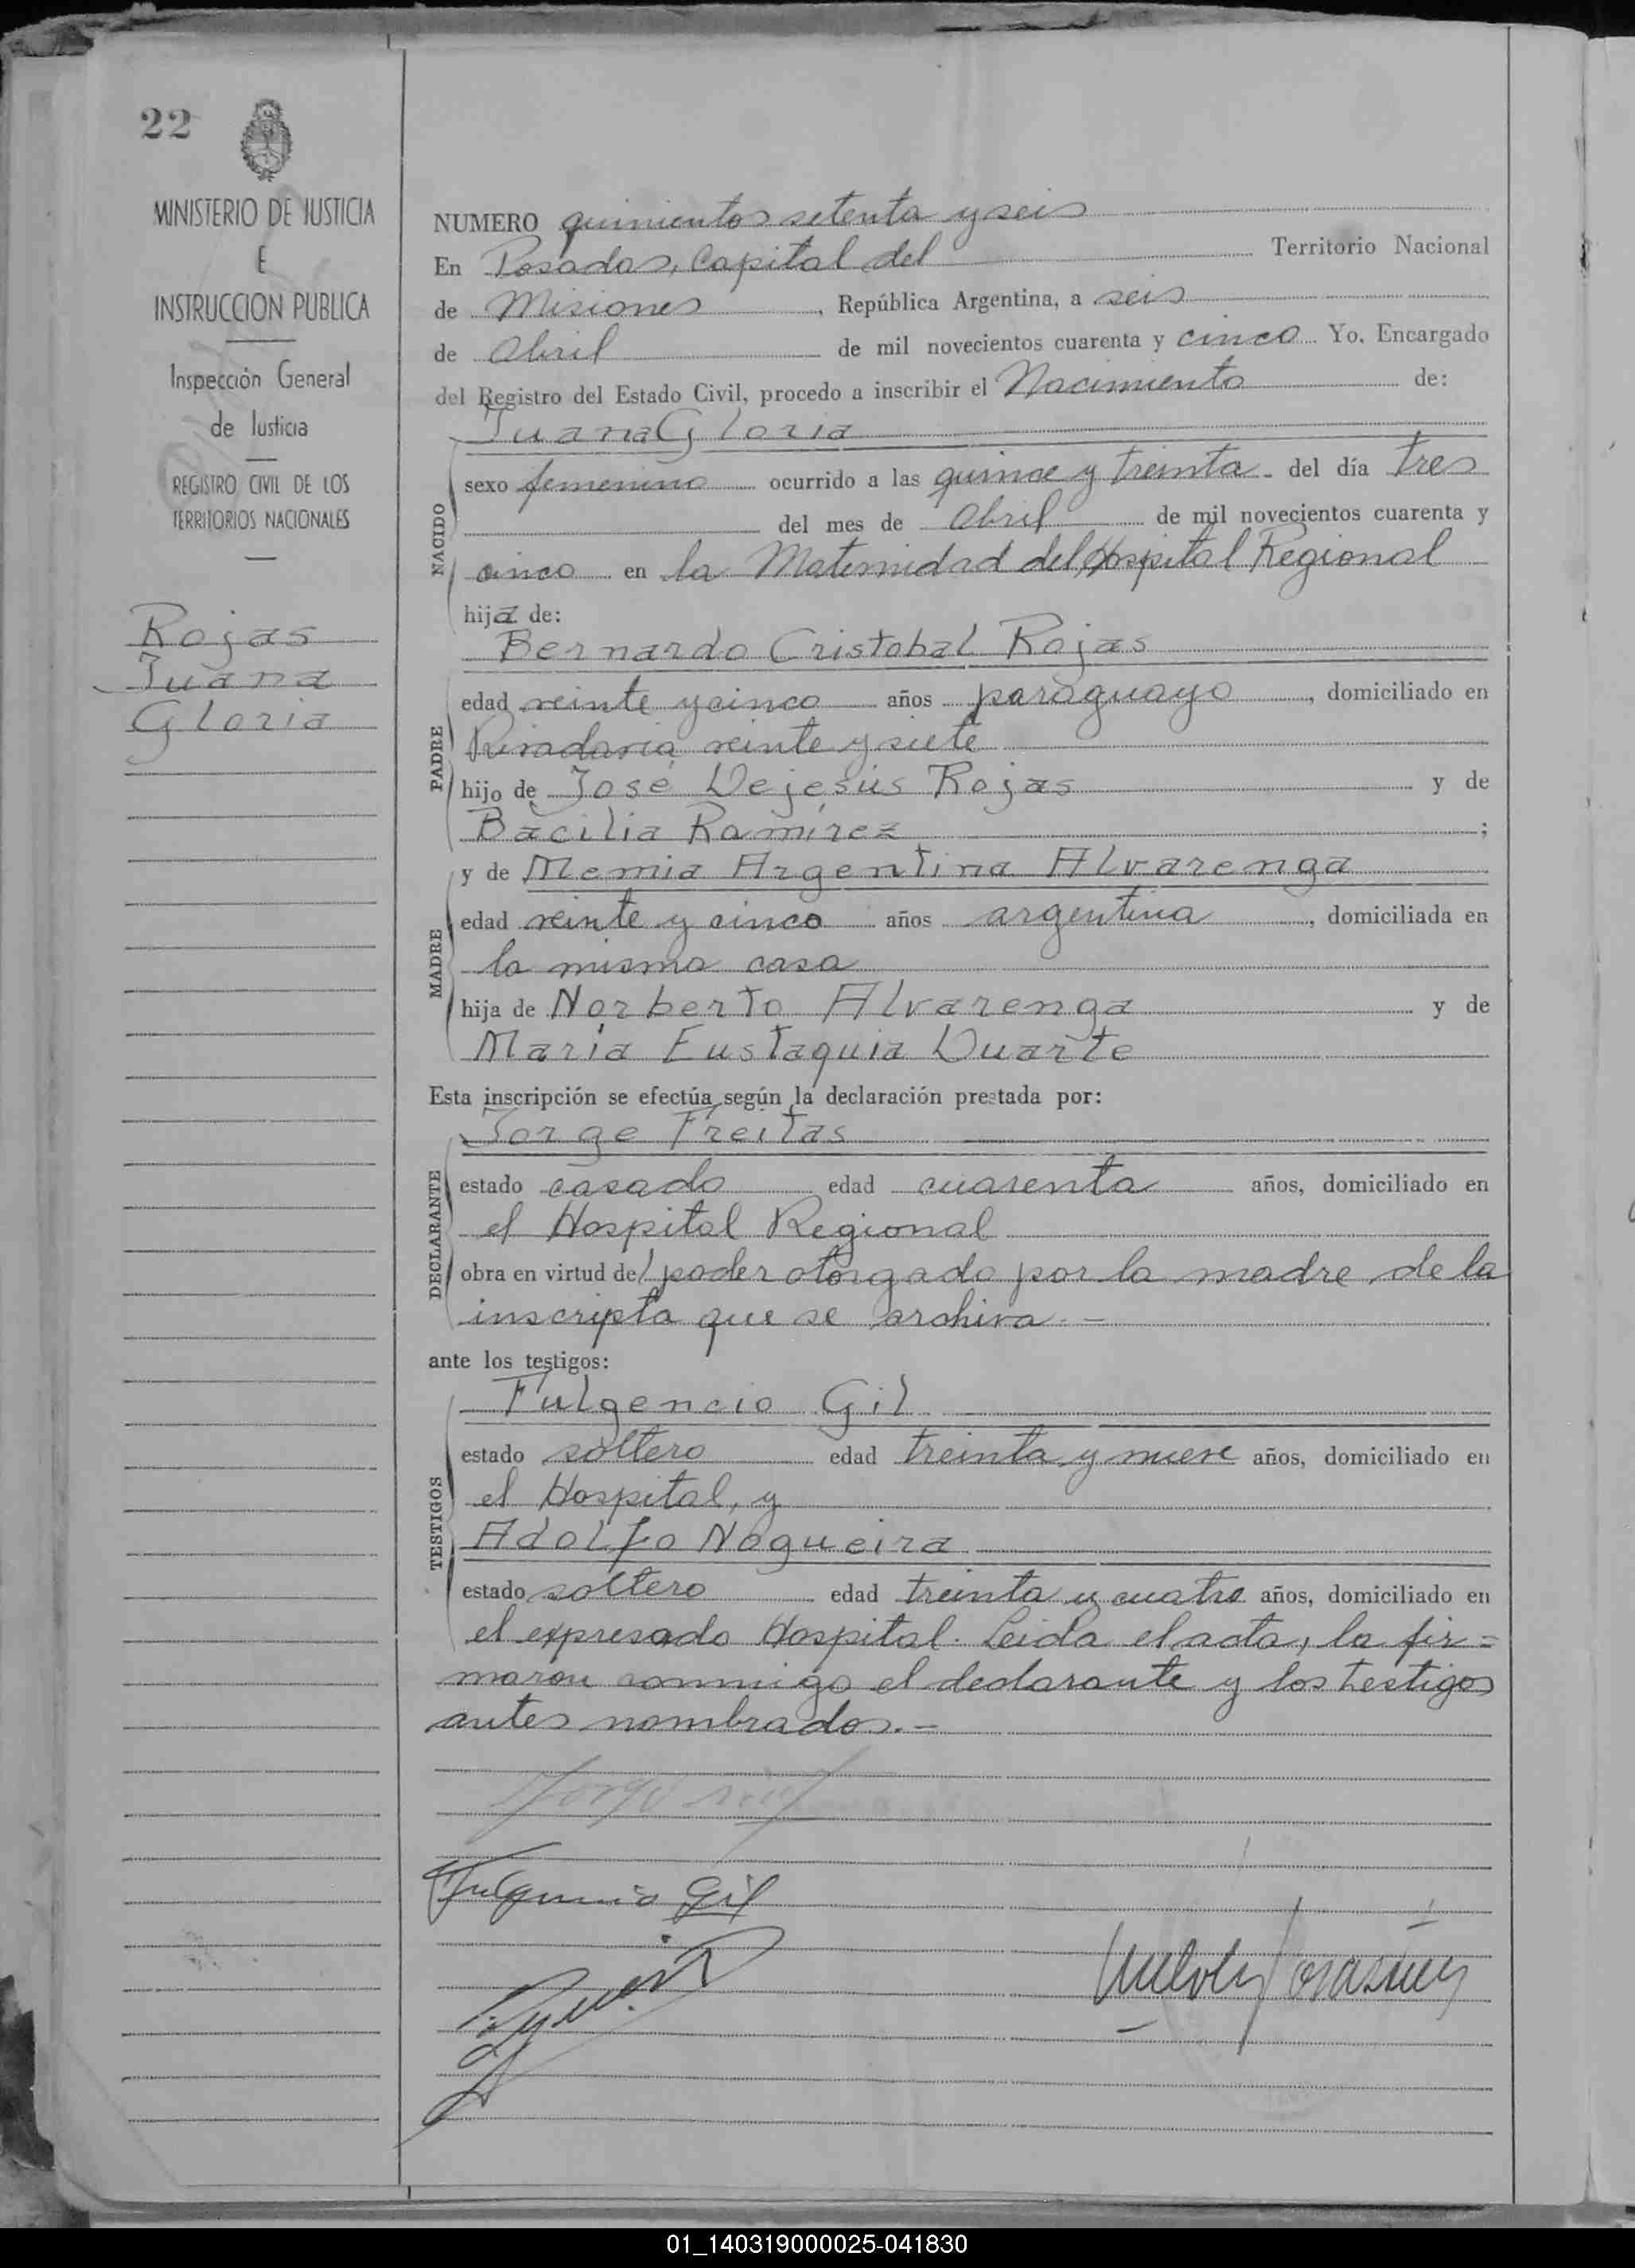 22
MINISTERIO DE JUSTICIA
E
INSTRUCCION PUBLICA
Inspección General
de Justicia
REGISTRO CIVIL DE LOS
TERRITORIOS NACIONALES
Rojas
Juana
Gloria
NUMERO quinientos setenta y seis
En Posadas, Capital del Territorio Nacional
de Misiones, República Argentina, a seis
de Abril de mil novecientos cuarenta y cinco. Yo, Encargado
del Registro del Estado Civil, procedo a inscribir el Nacimiento de:
Juana Gloria
NACIDO
sexo femenino ocurrido a las quince y treinta del día tres
del mes de Abril de mil novecientos cuarenta y
cinco en la Maternidad del Hospital Regional
hija de:
Bernardo Cristobal Rojas
PADRE
edad veinte y cinco años paraguayo, domiciliado en
Rivadavia veinte y siete
hijo de José Dejesús Rojas y de
Bacilia Ramírez;
y de Memia Argentina Alvarenga
MADRE
edad veinte y cinco años argentina, domiciliada en
la misma casa
hija de Norberto Alvarenga y de
María Eustaquia Duarte
Esta inscripción se efectúa según la declaración prestada por:
Jorge Freitas
DECLARANTE
estado casado edad cuarenta años, domiciliado en
el Hospital Regional
obra en virtud del poder otorgado por la madre de la
inscripta que se archiva.-
ante los testigos:
Fulgencio Gil
TESTIGOS
estado soltero edad treinta y nueve años, domiciliado en
el Hospital, y
Adolfo Nogueira
estado soltero edad treinta y cuatro años, domiciliado en
el expresado Hospital. Leida el acta, la fir=
maron conmigo el declarante y los testigos
antes nombrados.-
Fulgencio Gil
01_140319000025-041830